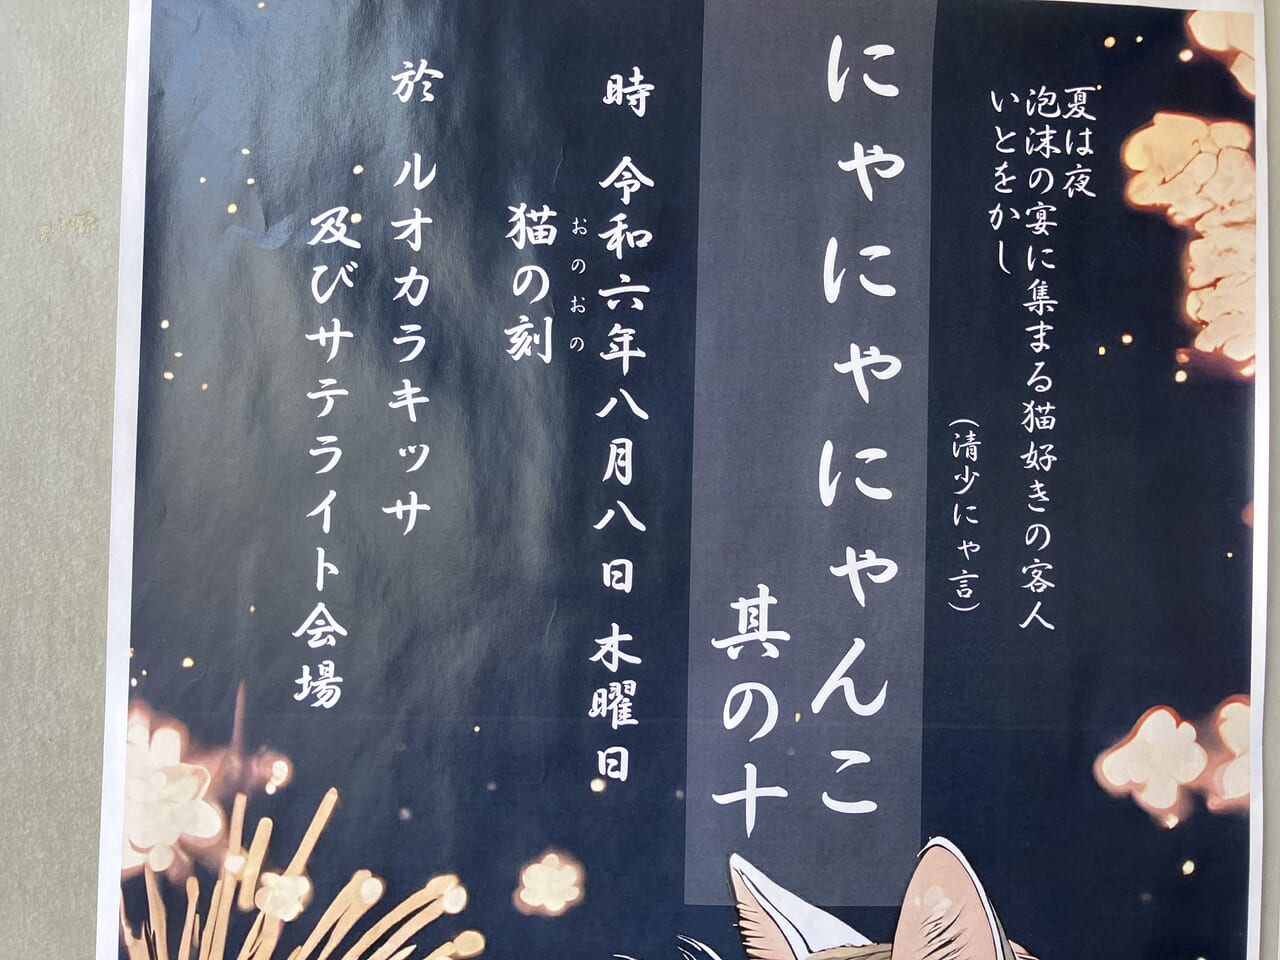 夏は夜
泡沫の宴に集まる猫好きの客人
いとをかし
（清少にゃ言）
にゃにゃにゃんこ
其の十
時　令和六年八月八日 木曜日
おのおの
猫の刻
於　ルオカラキッサ
及びサテライト会場